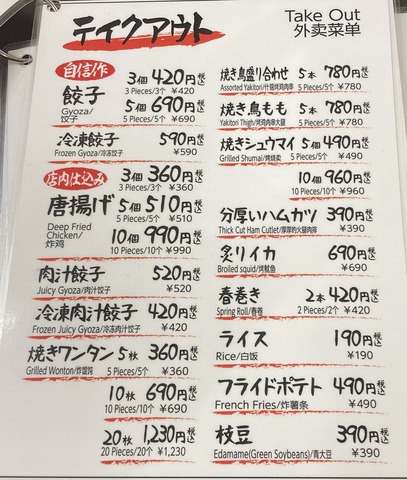 テイクアウト
Take Out
外卖菜单
自信作
餃子
Gyoza/
饺子
3個 420円 税込
3 Pieces/3个 ￥420
5個 690円 税込
5 Pieces/5个 ￥690
冷凍餃子 590円 税込
Frozen Gyoza/冷冻饺子 ￥590
店内仕込み
唐揚げ
Deep Fried
Chicken/
炸鸡
3個 360円 税込
3 Pieces/3个 ￥360
5個 510円 税込
5 Pieces/5个 ￥510
10個 990円 税込
10 Pieces/10个 ￥990
肉汁餃子 520円 税込
Juicy Gyoza/肉汁饺子 ￥520
冷凍肉汁餃子 420円 税込
Frozen Juicy Gyoza/冷冻肉汁饺子 ￥420
焼きワンタン 5枚 360円 税込
Grilled Wonton/炸馄饨 5 Pieces/5个 ￥360
10枚 690円 税込
10 Pieces/10个 ￥690
20枚 1,230円 税込
20 Pieces/20个 ￥1,230
焼き鳥盛り合わせ 5本 780円 税込
Assorted Yakitori/什锦烤鸡肉串 5 Pieces/5个 ￥780
焼き鳥もも 5本 780円 税込
Yakitori Thigh/烤鸡肉串大腿 5 Pieces/5个 ￥780
焼きシュウマイ 5個 490円 税込
Grilled Shumai/烤烧卖 5 Pieces/5个 ￥490
10個 960円 税込
10 Pieces/10个 ￥960
分厚いハムカツ 390円 税込
Thick Cut Ham Cutlet/厚厚的火腿肉排 ￥390
炙りイカ 690円 税込
Broiled squid/烤鱿鱼 ￥690
春巻き 2本 420円 税込
Spring Roll/春卷 2 Pieces/2个 ￥420
ライス 190円 税込
Rice/白饭 ￥190
フライドポテト 490円 税込
French Fries/炸薯条 ￥490
枝豆 390円 税込
Edamame(Green Soybeans)/青大豆 ￥390